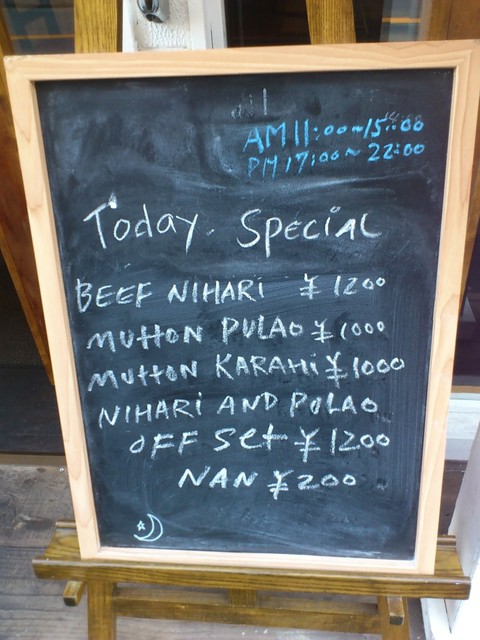 AM 11:00~15:00
PM 17:00~22:00
Today. Special
BEEF NIHARI ¥1200
MUTTON PULAO ¥1000
MUTTON KARAHI ¥1000
NIHARI AND PULAO
OFF Set ¥1200
NAN ¥200